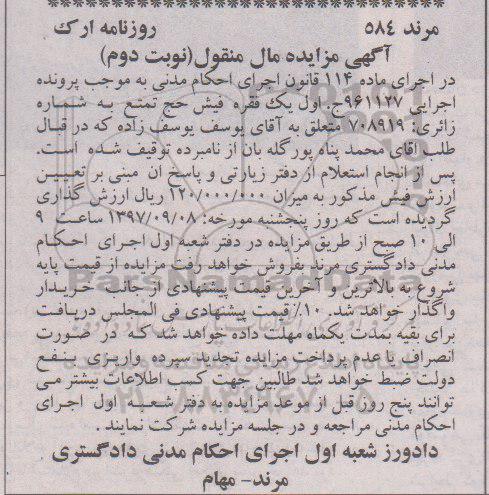 مرند ۵۸۴ روزنامه ارک
آگهی مزایده مال منقول(نوبت دوم)
در اجرای ماده ۱۱۴ قانون اجرای احکام مدنی به موجب پرونده
اجرایی ۹۶۱۱۲۷ج. اول یک فقره فیش حج تمتع به شماره
زائری: ۷۰۸۹۱۹ متعلق به آقای یوسف یوسف زاده که در قبال
طلب اقای محمد پناه پورگله بان از نامبرده توقیف شده است.
پس از انجام استعلام از دفتر زیارتی و پاسخ ان مبنی بر تعیین
ارزش فیش مذکور به میزان ۱۲۰/۰۰۰/۰۰۰ ریال ارزش گذاری
گردیده است که روز پنجشنبه مورخه: ۱۳۹۷/۰۹/۰۸ ساعت ۹
الی ۱۰ صبح از طریق مزایده در دفتر شعبه اول اجرای احکام
مدنی دادگستری مرند بفروش خواهد رفت مزایده از قیمت پایه
شروع به بالاترین و آخرین قیمت پیشنهادی از جانب خریدار
واگذار خواهد شد. ۱۰٪ قیمت پیشنهادی فی المجلس دریافت
برای بقیه بمدت یکماه مهلت داده خواهد شد که در صورت
انصراف یا عدم پرداخت مزایده تجدید سپرده واریزی بنفع
دولت ضبط خواهد شد طالبین جهت کسب اطلاعات بیشتر می
توانند پنج روز قبل از موعد مزایده به دفتر شعبه اول اجرای
احکام مدنی مراجعه و در جلسه مزایده شرکت نمایند.
دادورز شعبه اول اجرای احکام مدنی دادگستری
مرند- مهام
ParsNamadData